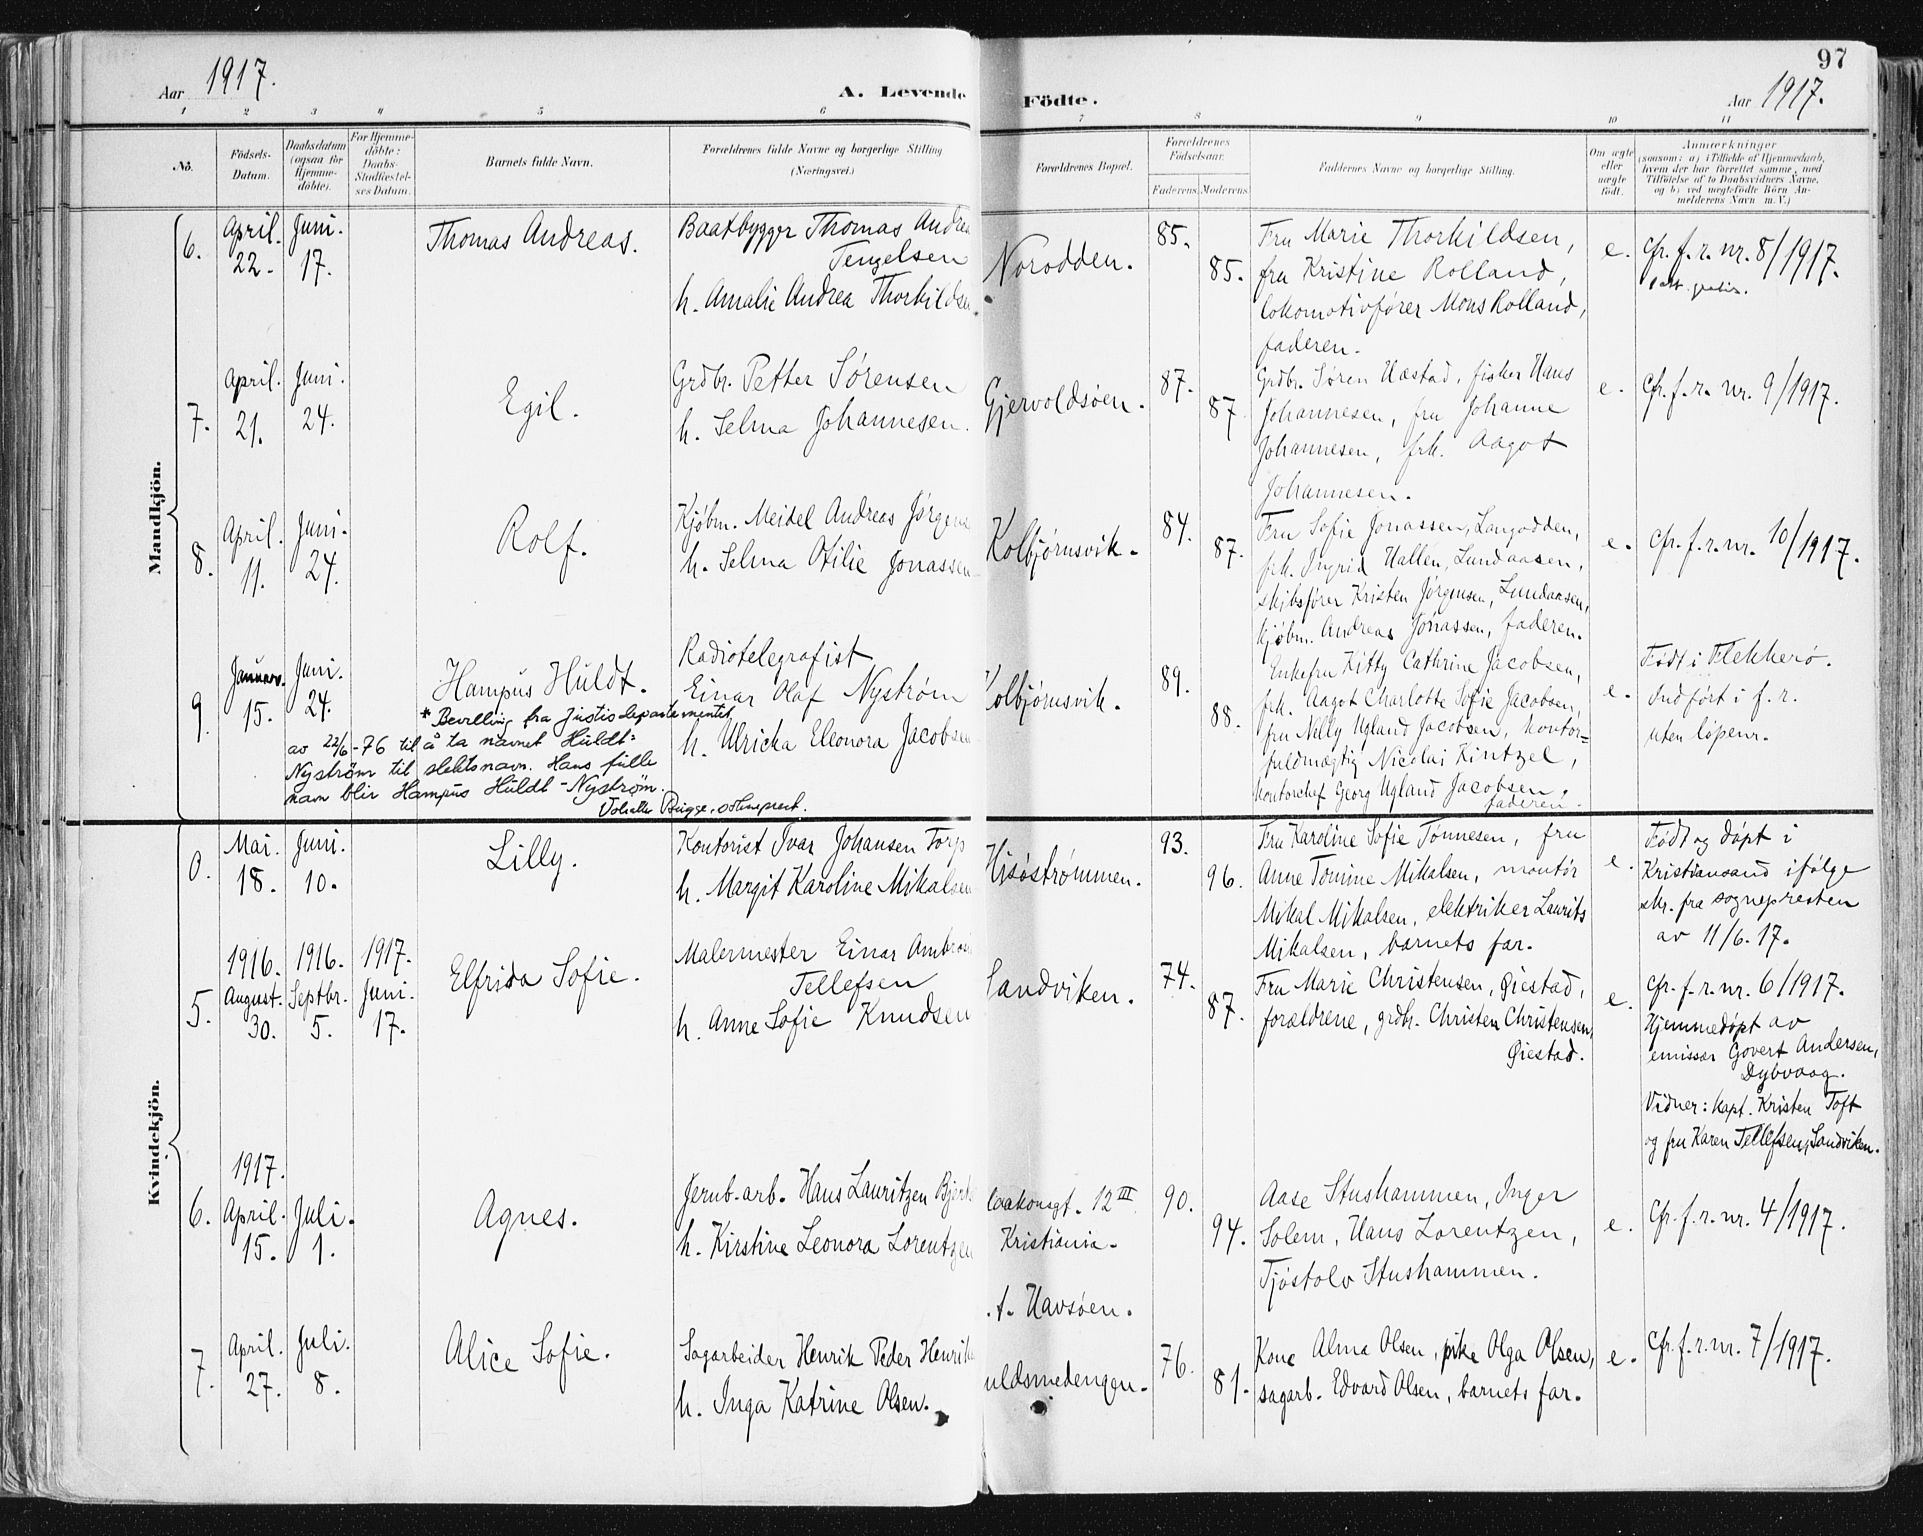 97
Aar 1917.
A. Levende Födte.
Aar 1917.
1 2 3 4 5 6 7 8 9 10 11
No.
Födsels-Datum.
Daabsdatum (ogsaa for Hjemmedöbte).
For Hjemmedöbte: Daabs-Stadfæstelses Datum.
Barnets fulde Navn.
Forældrenes fulde Navne og borgerlige Stilling (Næringsvei.)
Forældrenes Bopæl.
Forældrenes Födselsaar.
Faderens. Moderens.
Faddernes Navne og borgerlige Stilling.
Om ægte eller uægte födt.
Anmærkninger
(saasom: a) i Tilfælde af Hjemmedaab,
hvem der har forrettet samme, med
Tilföielse af to Daabsvidners Navne,
og b) ved uægtefödte Börn An-
melderens Navn m. V.)
Mandkjön.
6.
April. 22.
Juni. 17.
Thomas Andreas.
Baatbygger Thomas Andrea
Tengelsen
h. Amalie Andrea Thorkildsen
Norodden.
85.
85.
Fru Marie Thorkildsen,
fru Kristine Rolland,
lokomotivfører Mons Rolland,
faderen.
e.
Cfr. f. r. nr. 8/1917.
1 att. gratis.
7.
April. 21.
Juni. 24.
Egil.
Grdbr. Petter Sørensen
h. Selma Johannesen.
Gjervoldsøen.
87.
87.
Grdbr. Søren Næstad, fisker Hans
Johannesen, fru Johanne
Johannesen, frk. Aagot
Johannesen.
e.
Cfr. f. r. nr. 9/1917.
8.
April. 11.
Juni. 24.
Rolf.
Kjøbm. Meidel Andreas Jørgense
h. Selma Otilie Jonassen
Kolbjørnsvik.
84.
87.
Fru Sofie Jonassen, Langodden,
frk. Ingrid Hallen, Lundaasen,
skibsfører Kristen Jørgensen, Lundaasen,
kjøbm. Andreas Jonassen, faderen.
e.
Cfr. f. r. nr. 10/1917.
9.
Januar. 15.
Juni. 24.
Hampus Huldt.
Radiotelegrafist
Einar Olaf Nyström
h. Ulricka Eleonora Jacobsen
* Bevilling fra Justisdepartementet
av 22/6-76 til å ta navnet Huldt-
Nyström til slektsnavn. Hans fulle
navn blir Hampus Huldt-Nyström.
Kolbjørnsvik.
89.
88.
Enkefru Kitty Cathrine Jacobsen,
frk. Aagot Charlotte Sofie Jacobsen,
fru Nelly Ugland Jacobsen, kontor-
fuldmægtig Nicolai Kintzel,
kontorchef Georg Ugland Jacobsen,
faderen.
e.
Født i Flekkerø.
Indført i f. r.
uten løpenr.
Kvindekjön.
0.
Mai. 18.
Juni. 10.
Lilly.
Kontorist Ivar Johansen Torp
h. Margit Karoline Mikalsen
Hisøstrømmen.
93.
96.
Fru Karoline Sofie Tønnesen, fru
Anne Tomine Mikalsen, montør
Mikal Mikalsen, elektriker Laurits
Mikalsen, barnets far.
e.
Født og døpt i
Kristiansand ifølge
skr. fra sognepresten
av 11/6. 17.
5.
1916. August. 30.
1916. Septbr. 5.
1917. Juni. 17.
Elfrida Sofie.
Malermester Einar
Tellefsen
h. Anne Sofie Knudsen
Sandviken.
74.
87.
Fru Marie Christensen, Øiestad,
forældrene, grdbr. Christen Christensen,
Øiestad.
e.
Cfr. f. r. nr. 6/1917.
Hjemmedøpt av
emissær Govert Andersen,
Dybvaag.
Vidner: kapt. Kristen Toft
og fru Karen Tellefsen, Sandviken.
6.
1917. April. 15.
Juli. 1.
Agnes.
Jernb. arb. Hans Lauritzen
h. Kirstine Leonora Lorentzen
12 III
Kristiania.
.t. Havsøen.
90.
94.
Aase Stushammen, Inger
Solem, Hans Lorentzen,
Tjøstolv Stushammen.
e.
Cfr. f. r. nr. 4/1917.
7.
April. 27.
Juli. 8.
Alice Sofie.
Sagarbeider Henrik Peder Henrik
h. Inga Katrine Olsen.
uldsmedengen.
76.
81.
Kone Alma Olsen, pike Olga Olsen,
sagarb. Edvard Olsen, barnets far.
e.
Cfr. f. r. nr. 7/1917.